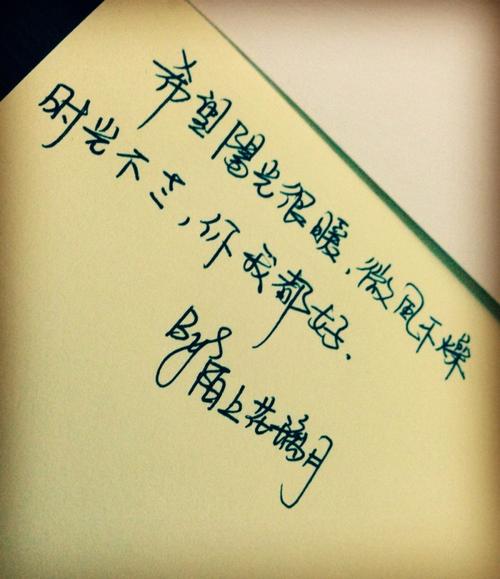 希望陽光很暖，微风不燥
时光不老，你我都好．
By：陌上花璃月